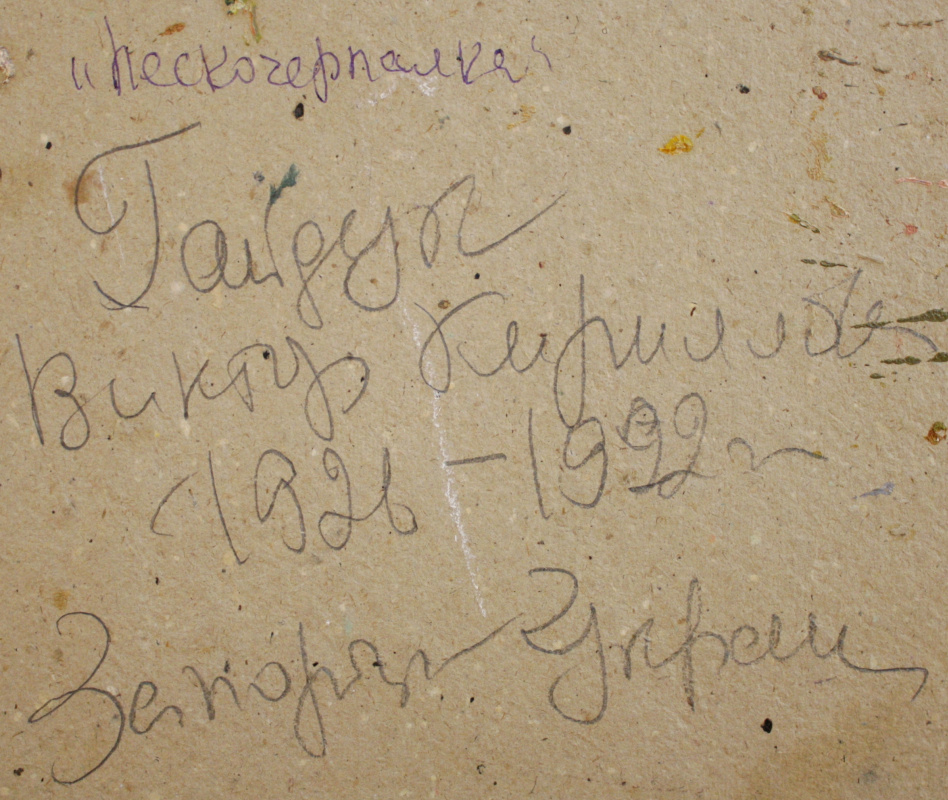 "Пескочерпалка"
Гайдук
Виктор Кириллов
1926 – 1992 г
Запорож Украин